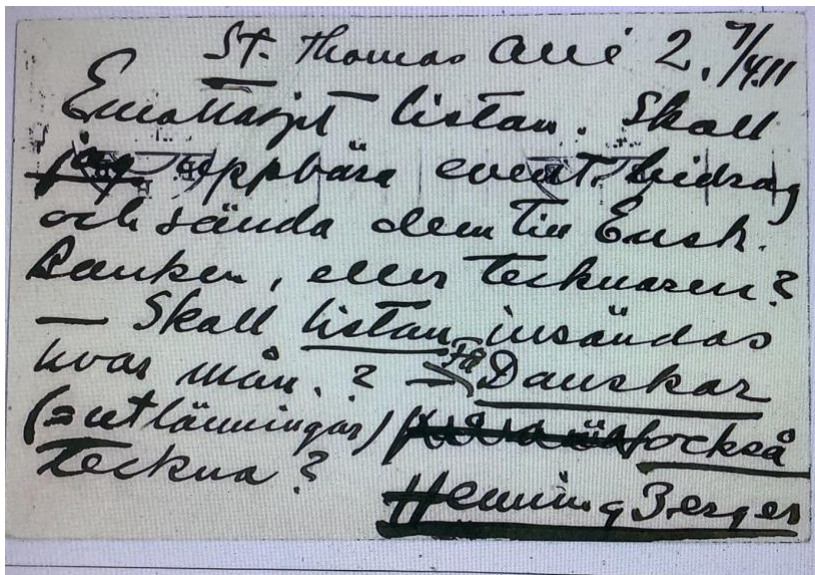 St. Thomas Allé 2. 7/4.11
Emottagit listan. Skall
jag uppbära event. bidrag
och sända dem till Ensk.
Banken, eller tecknaren?
— Skall listan insändas
hvar mån. ? — Få Danskar
(= utlänningar) också
teckna?
Henning Berger